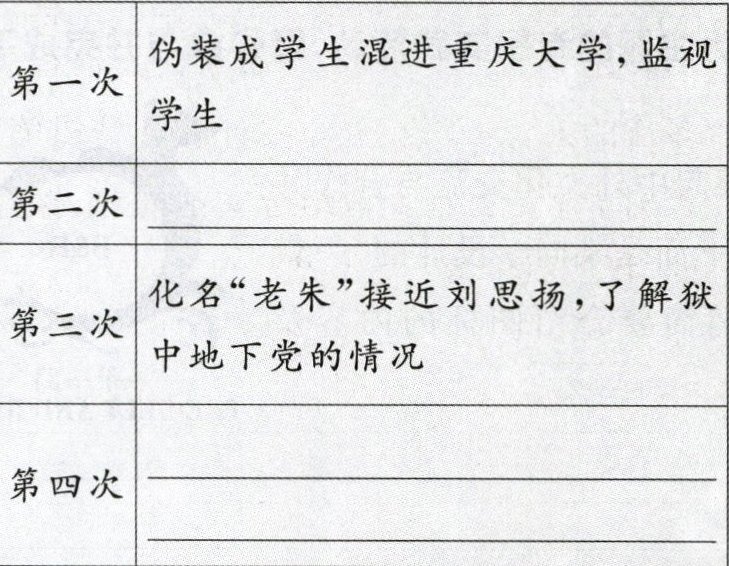 第一次
伪装成学生混进重庆大学，监视
学生
第二次
第三次
化名“老朱”接近刘思扬，了解狱
中地下党的情况
第四次